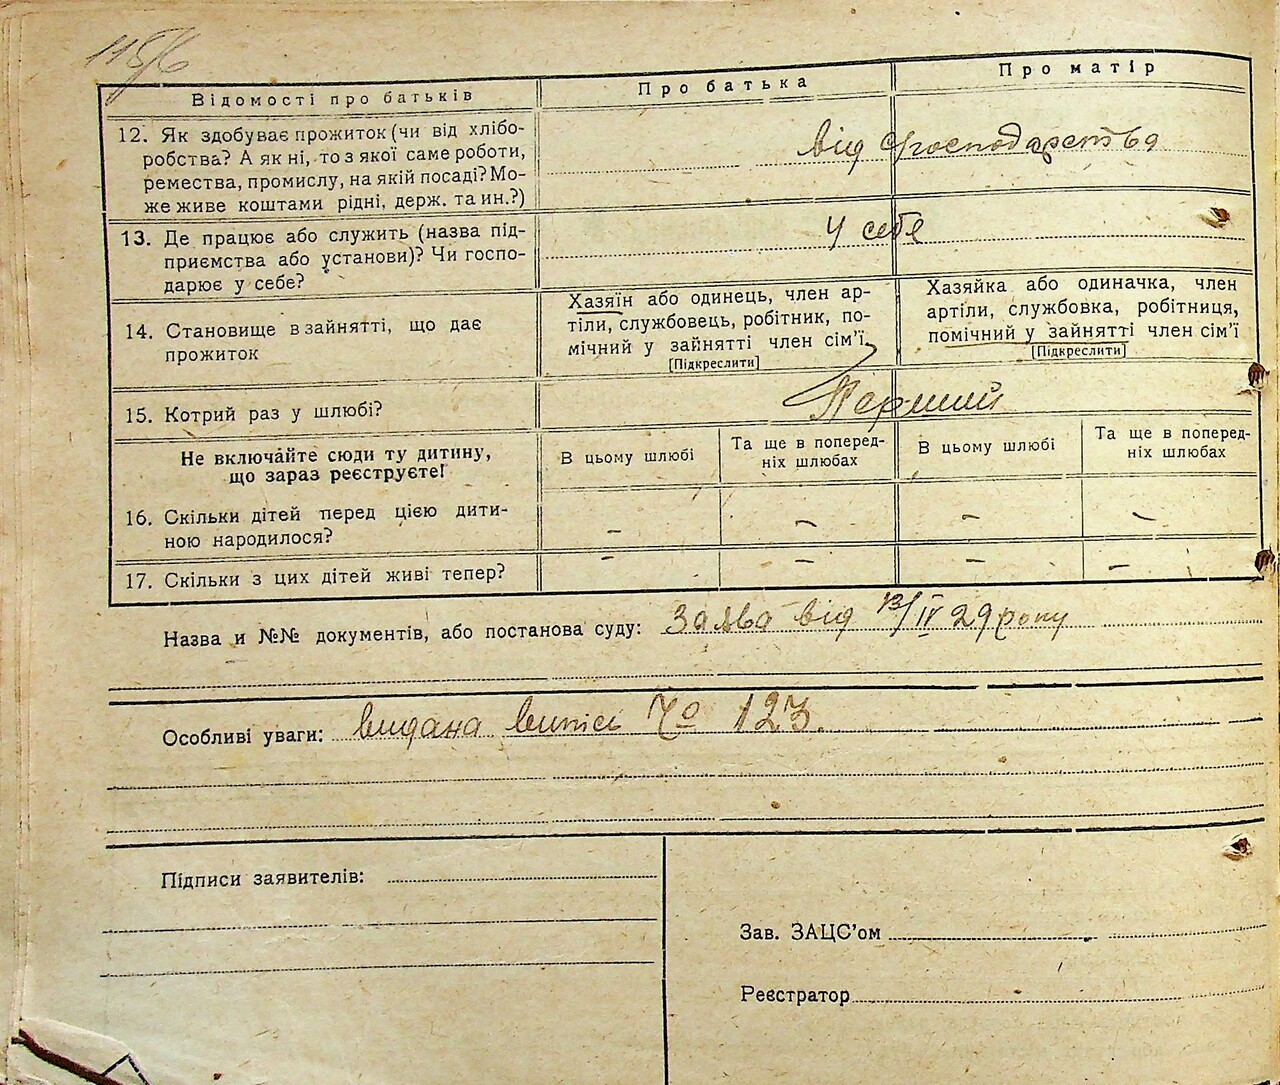 115/6
Відомості про батьків
Про батька
Про матір
12. Як здобуває прожиток (чи від хлібо-
робства? А як ні, то з якої саме роботи,
ремества, промислу, на якій посаді? Мо-
же живе коштами рідні, держ. та ин.?)
від господарства
13. Де працює або служить (назва під-
приємства або установи)? Чи госпо-
дарює у себе?
у себе
14. Становище в зайнятті, що дає
прожиток
Хазяїн або одинець, член ар-
тіли, службовець, робітник, по-
мічний у зайнятті член сім'ї
[Підкреслити]
Хазяйка або одиначка, член
артіли, службовка, робітниця,
помічний у зайнятті член сім'ї
[Підкреслити]
15. Котрий раз у шлюбі?
Перший
Не включайте сюди ту дитину,
що зараз реєструєте!
В цьому шлюбі
Та ще в поперед-
ніх шлюбах
В цьому шлюбі
Та ще в поперед-
ніх шлюбах
16. Скільки дітей перед цією дити-
ною народилося?
– – – –
17. Скільки з цих дітей живі тепер?
– – – –
Назва и №№ документів, або постанова суду: Заява від 13/IV 29 року
Особливі уваги: видана випись № 123.
Підписи заявителів:
Зав. ЗАЦС'ом
Реєстратор